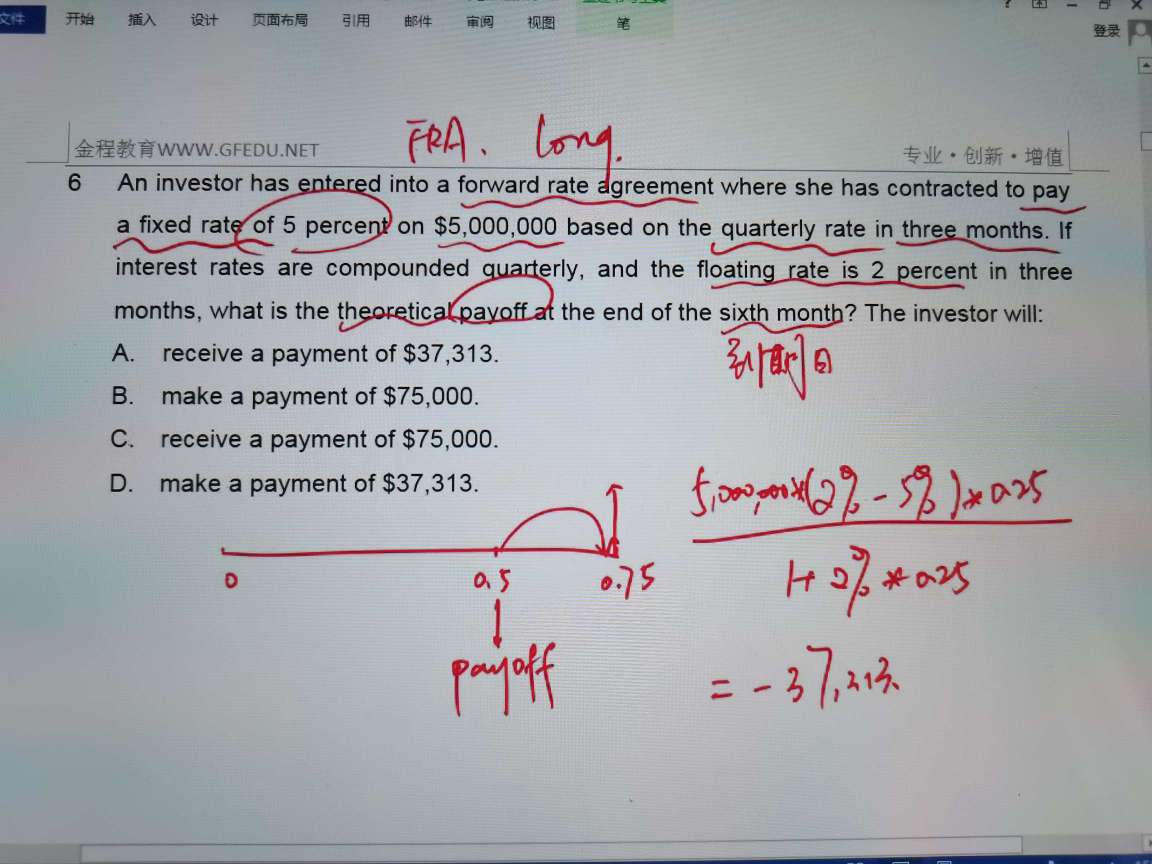 文件 开始 插入 设计 页面布局 引用 邮件 审阅 视图 笔
登录
FRA. Long.
金程教育WWW.GFEDU.NET 专业·创新·增值
6 An investor has entered into a forward rate agreement where she has contracted to pay
a fixed rate of 5 percent on $5,000,000 based on the quarterly rate in three months. If
interest rates are compounded quarterly, and the floating rate is 2 percent in three
months, what is the theoretical payoff at the end of the sixth month? The investor will:
A. receive a payment of $37,313.
B. make a payment of $75,000.
C. receive a payment of $75,000.
D. make a payment of $37,313.
到期日
5,000,000*(2%-5%)*0.25
1+2%*0.25
0 0.5 0.75
payoff
=-37,313.